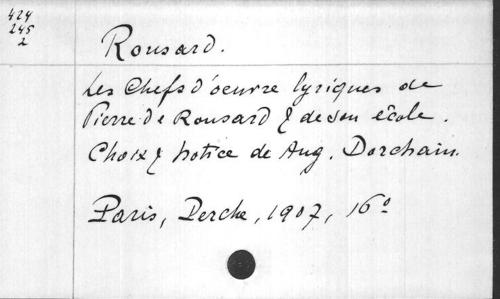 424
245
2
Ronsard.
Les Chefs d'oeuvre lyriques de
Pierre de Ronsard & de son école.
Choix & notice de Aug. Dorchain.
Paris, Perche, 1907, 16º